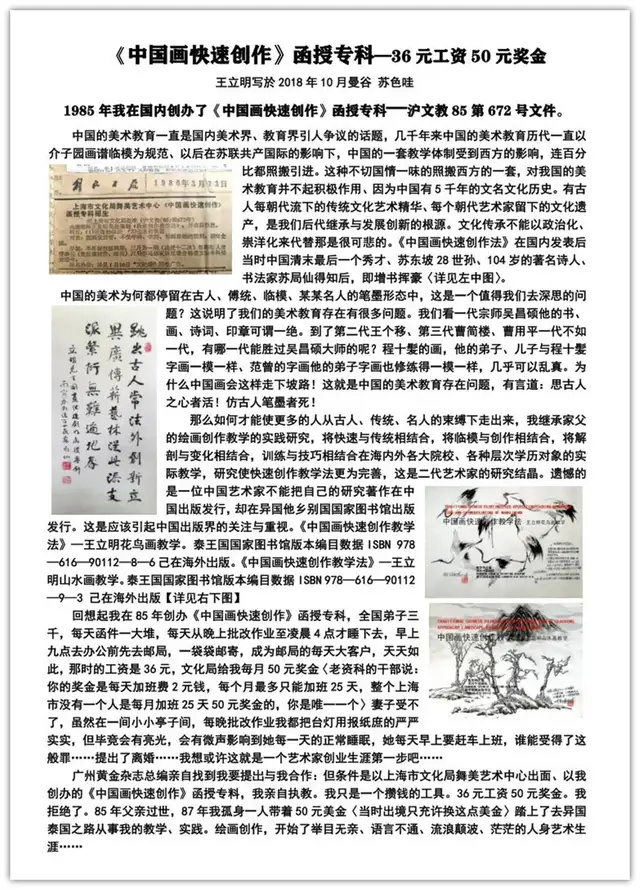 《中国画快速创作》函授专科—36元工资50元奖金
王立明写於2018年10月曼谷 苏色哇
1985年我在国内创办了《中国画快速创作》函授专科——沪文教85第672号文件。
中国的美术教育一直是国内美术界、教育界引人争议的话题，几千年来中国的美术教育历代一直以
介子园画谱临模为规范、以后在苏联共产国际的影响下，中国的一套教学体制受到西方的影响，连百分
比都照搬引进。这种不切国情一味的照搬西方的一套，对我国的美
术教育并不起积极作用、因为中国有5千年的文名文化历史。有古
人每朝代流下的传统文化艺术精华、每个朝代艺术家留下的文化遗
产，是我们后代继承与发展创新的根源。文化传承不能以政治化、
崇洋化来代替那是很可悲的。《中国画快速创作法》在国内发表后
当时中国清末最后一个秀才、苏东坡28世孙、104岁的著名诗人、
书法家苏局仙得知后，即增书挥豪〈详见左中图〉。
解放日报
1986年3月23日
上海市文化局舞美艺术中心《中国画快速创作》
函授专科招生
中国的美术为何都停留在古人、傅统、临模、某某名人的笔墨形态中，这是一个值得我们去深思的问
题？这说明了我们的美术教育存在有很多问题。我们看一代宗师吴昌硕他的书、
画、诗词、印章可谓一绝。到了第二代王个移、第三代曹简楼、曹用平一代不如
一代，有哪一代能胜过吴昌硕大师的呢？程十髪的画，他的弟子、儿子与程十髪
字画一模一样、范曾的字画他的弟子字画也修练得一模一样，几乎可以乱真。为
什么中国画会这样走下坡路！这就是中国的美术教育存在问题，有言道：思古人
之心者活！仿古人笔墨者死！
跳出古人常法外创新立
异广传薪艺林从此添支
派繁衍无难遍地春
那么如何才能使更多的人从古人、传统、名人的束缚下走出来，我继承家父
的绘画创作教学的实践研究，将快速与传统相结合，将临模与创作相结合，将解
剖与变化相结合，训练与技巧相结合在海内外各大院校、各种层次学历对象的实
际教学，研究使快速创作教学法更为完善，这是二代艺术家的研究结晶。遗憾的
是一位中国艺术家不能把自己的研究著作在中
国出版发行，却在异国他乡别国国家图书馆出版
发行。这是应该引起中国出版界的关注与重视。《中国画快速创作教学
法》—王立明花鸟画教学。泰王国国家图书馆版本编目数据ISBN 978
—616—90112—8—6己在海外出版。《中国画快速创作教学法》—王立
明山水画教学。泰王国国家图书馆版本编目数据ISBN 978—616—90112
—9—3 己在海外出版【详见右下图】
中国画快速创作教学法 王立明花鸟画教学
中国画快速创作教学法
回想起我在85年创办《中国画快速创作》函授专科，全国弟子三
千，每天函件一大堆，每天从晚上批改作业至凌晨4点才睡下去，早上
九点去办公前先去邮局，一袋袋邮寄，成为邮局的每天大客户，天天如
此，那时的工资是36元，文化局给我每月50元奖金〈老资科的干部说：
你的奖金是每天加班费2元钱，每个月最多只能加班25天，整个上海
市没有一个人是每月加班25天50元奖金的，你是唯一一个〉妻子受不
了，虽然在一间小小亭子间，每晚批改作业我都把台灯用报纸庶的严严
实实，但毕竞会有亮光，会有微声影响到她每一天的正常睡眠，她每天早上要赶车上班，谁能受得了这
般罪……提出了离婚……我想或许这就是一个艺术家创业生涯第一步吧……
广州黄金杂志总编亲自找到我要提出与我合作：但条件是以上海市文化局舞美艺术中心出面、以我
创办的《中国画快速创作》函授专科，我亲自执教。我只是一个攒钱的工具。36元工资50元奖金。我
拒绝了。85年父亲过世，87年我孤身一人带着50元美金〈当时出境只充许换这点美金〉踏上了去异国
泰国之路从事我的教学、实践。绘画创作，开始了举目无亲、语言不通、流浪颠波、茫茫的人身艺术生
涯……